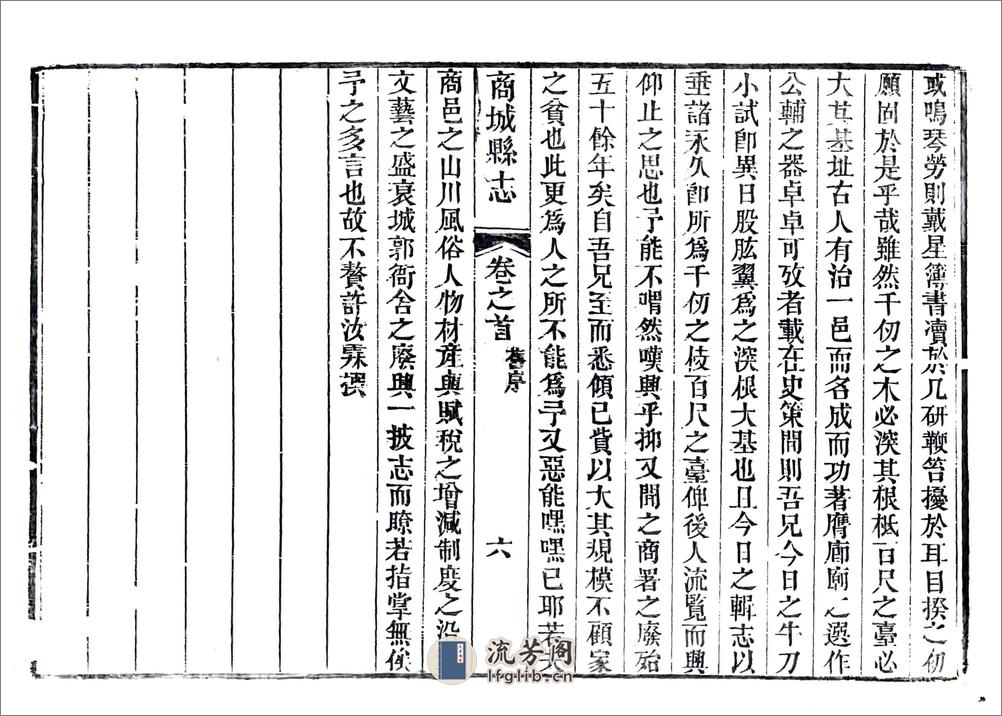 或鳴琴勞則戴星簿書瀆於几研鞭笞擾於耳目揆之初
願固於是乎哉雖然千仞之木必深其根柢百尺之臺必
大其基址古人有治一邑而名成而功著膺廊廟之選作
公輔之器卓卓可攷者載在史策間則吾兄今日之牛刀
小試卽異日股肱翼為之深根大基也且今日之輯志以
垂諸永久卽所爲千仞之枝百尺之臺俾後人流覽而興
仰止之思也予能不喟然嘆興乎抑又聞之商署之廢殆
五十餘年矣自吾兄至而悉傾已貲以大其規模不顧家
之貧也此更爲人之所不能爲予又惡能嘿嘿已耶若夫
商城縣志 卷之首 舊序 六
商邑之山川風俗人物材產與賦稅之增減制度之沿
文藝之盛衰城郭衙舍之廢興一披志而瞭若指掌無俟
予之多言也故不贅許汝霖撰
流芳阁
lfglib.cn